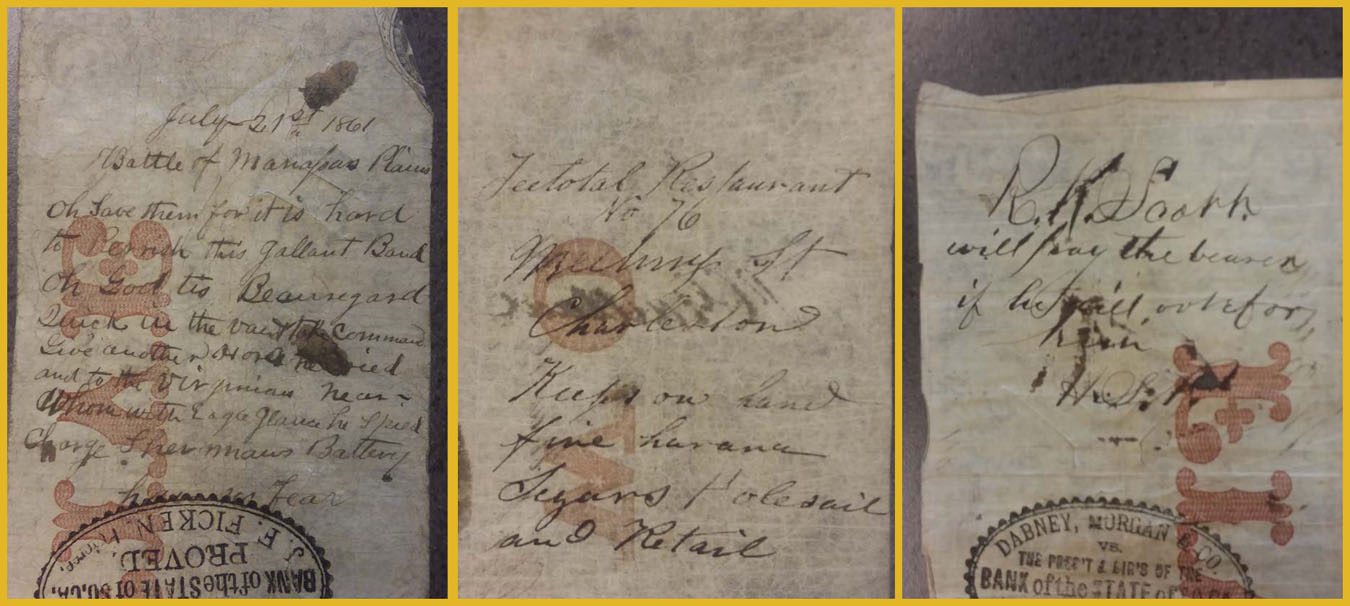 July 21st 1861
Battle of Manasas Plains
Oh Save them for it is hard
to Perrish this gallant Band
Oh God tis Beauregard
Quick in the van take Command
Give another Horse he cried
and to the Virginian near
Whom with Eagle glance he spied
Charge Shermans Battery
Fear
J. E. FICKEN, Referee
PROVED.
BANK of the STATE of SO. CA.
Teetotal Restaurant
No 76
St
Charleston
Keeps on hand
fine havana
Segars Holesail
and Retail
R. K. Scott
will pay the bearer
if he will vote for
him
DABNEY, MORGAN & CO.
VS.
THE PRES'T & DIR'S OF THE
BANK of the STATE of SO.CA.